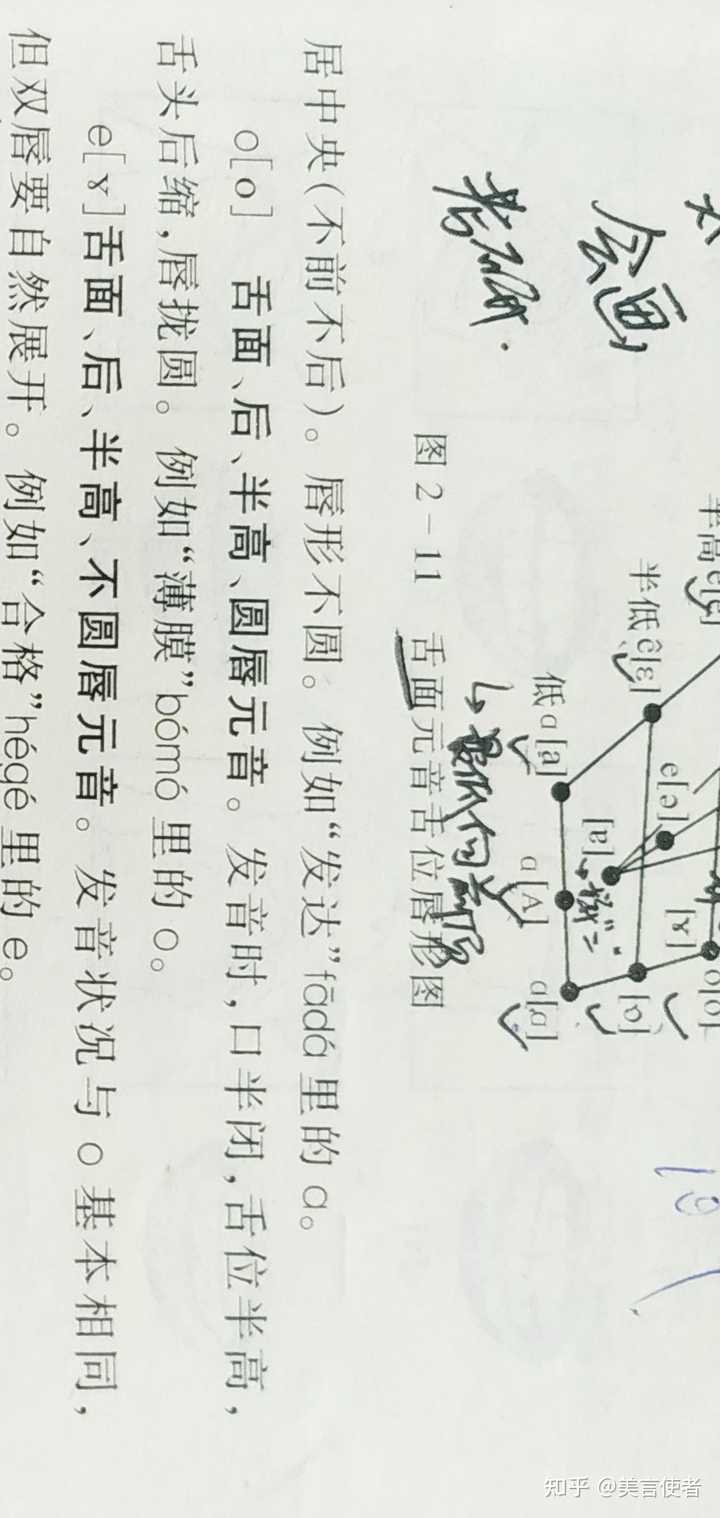 大
会画
半高e[e]
o[o]
[ɤ]
半低ê[ɛ]
e[ə]
[ɐ]
低ɑ[a]
ɑ[A]
ɑ[ɑ]
图 2-11 舌面元音舌位唇形图
居中央(不前不后)。唇形不圆。例如“发达”fādá里的ɑ。
o[o] 舌面、后、半高、圆唇元音。发音时,口半闭,舌位半高,
舌头后缩,唇拢圆。例如“薄膜”bómó里的o。
e[ɤ]舌面、后、半高、不圆唇元音。发音状况与o基本相同,
但双唇要自然展开。例如“合格”hégé里的e。
知乎 @美言使者